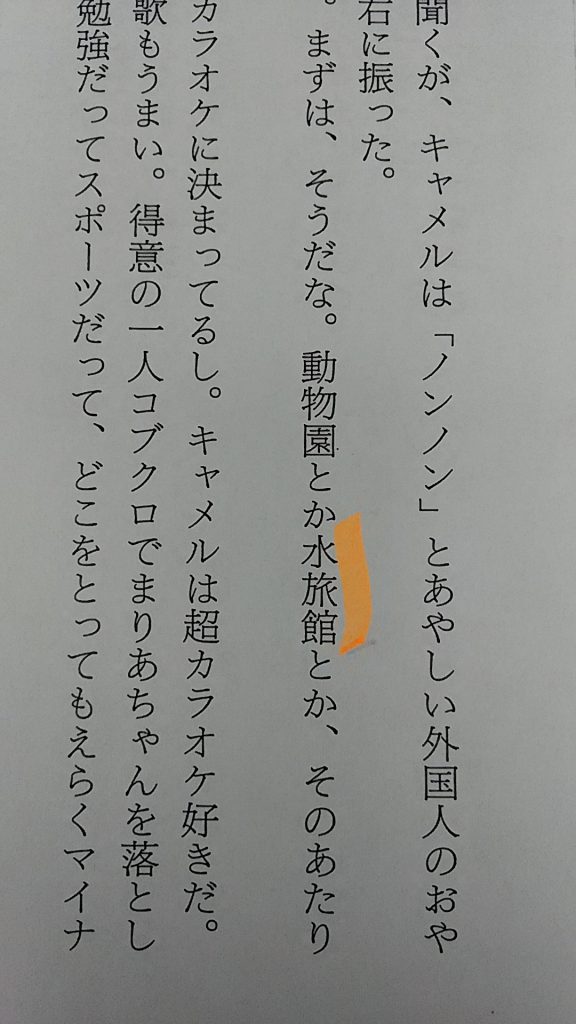 聞くが、キャメルは「ノンノン」とあやしい外国人のおや
右に振った。
。まずは、そうだな。動物園とか水旅館とか、そのあたり
カラオケに決まってるし。キャメルは超カラオケ好きだ。
歌もうまい。得意の一人コブクロでまりあちゃんを落とし
勉強だってスポーツだって、どこをとってもえらくマイナ